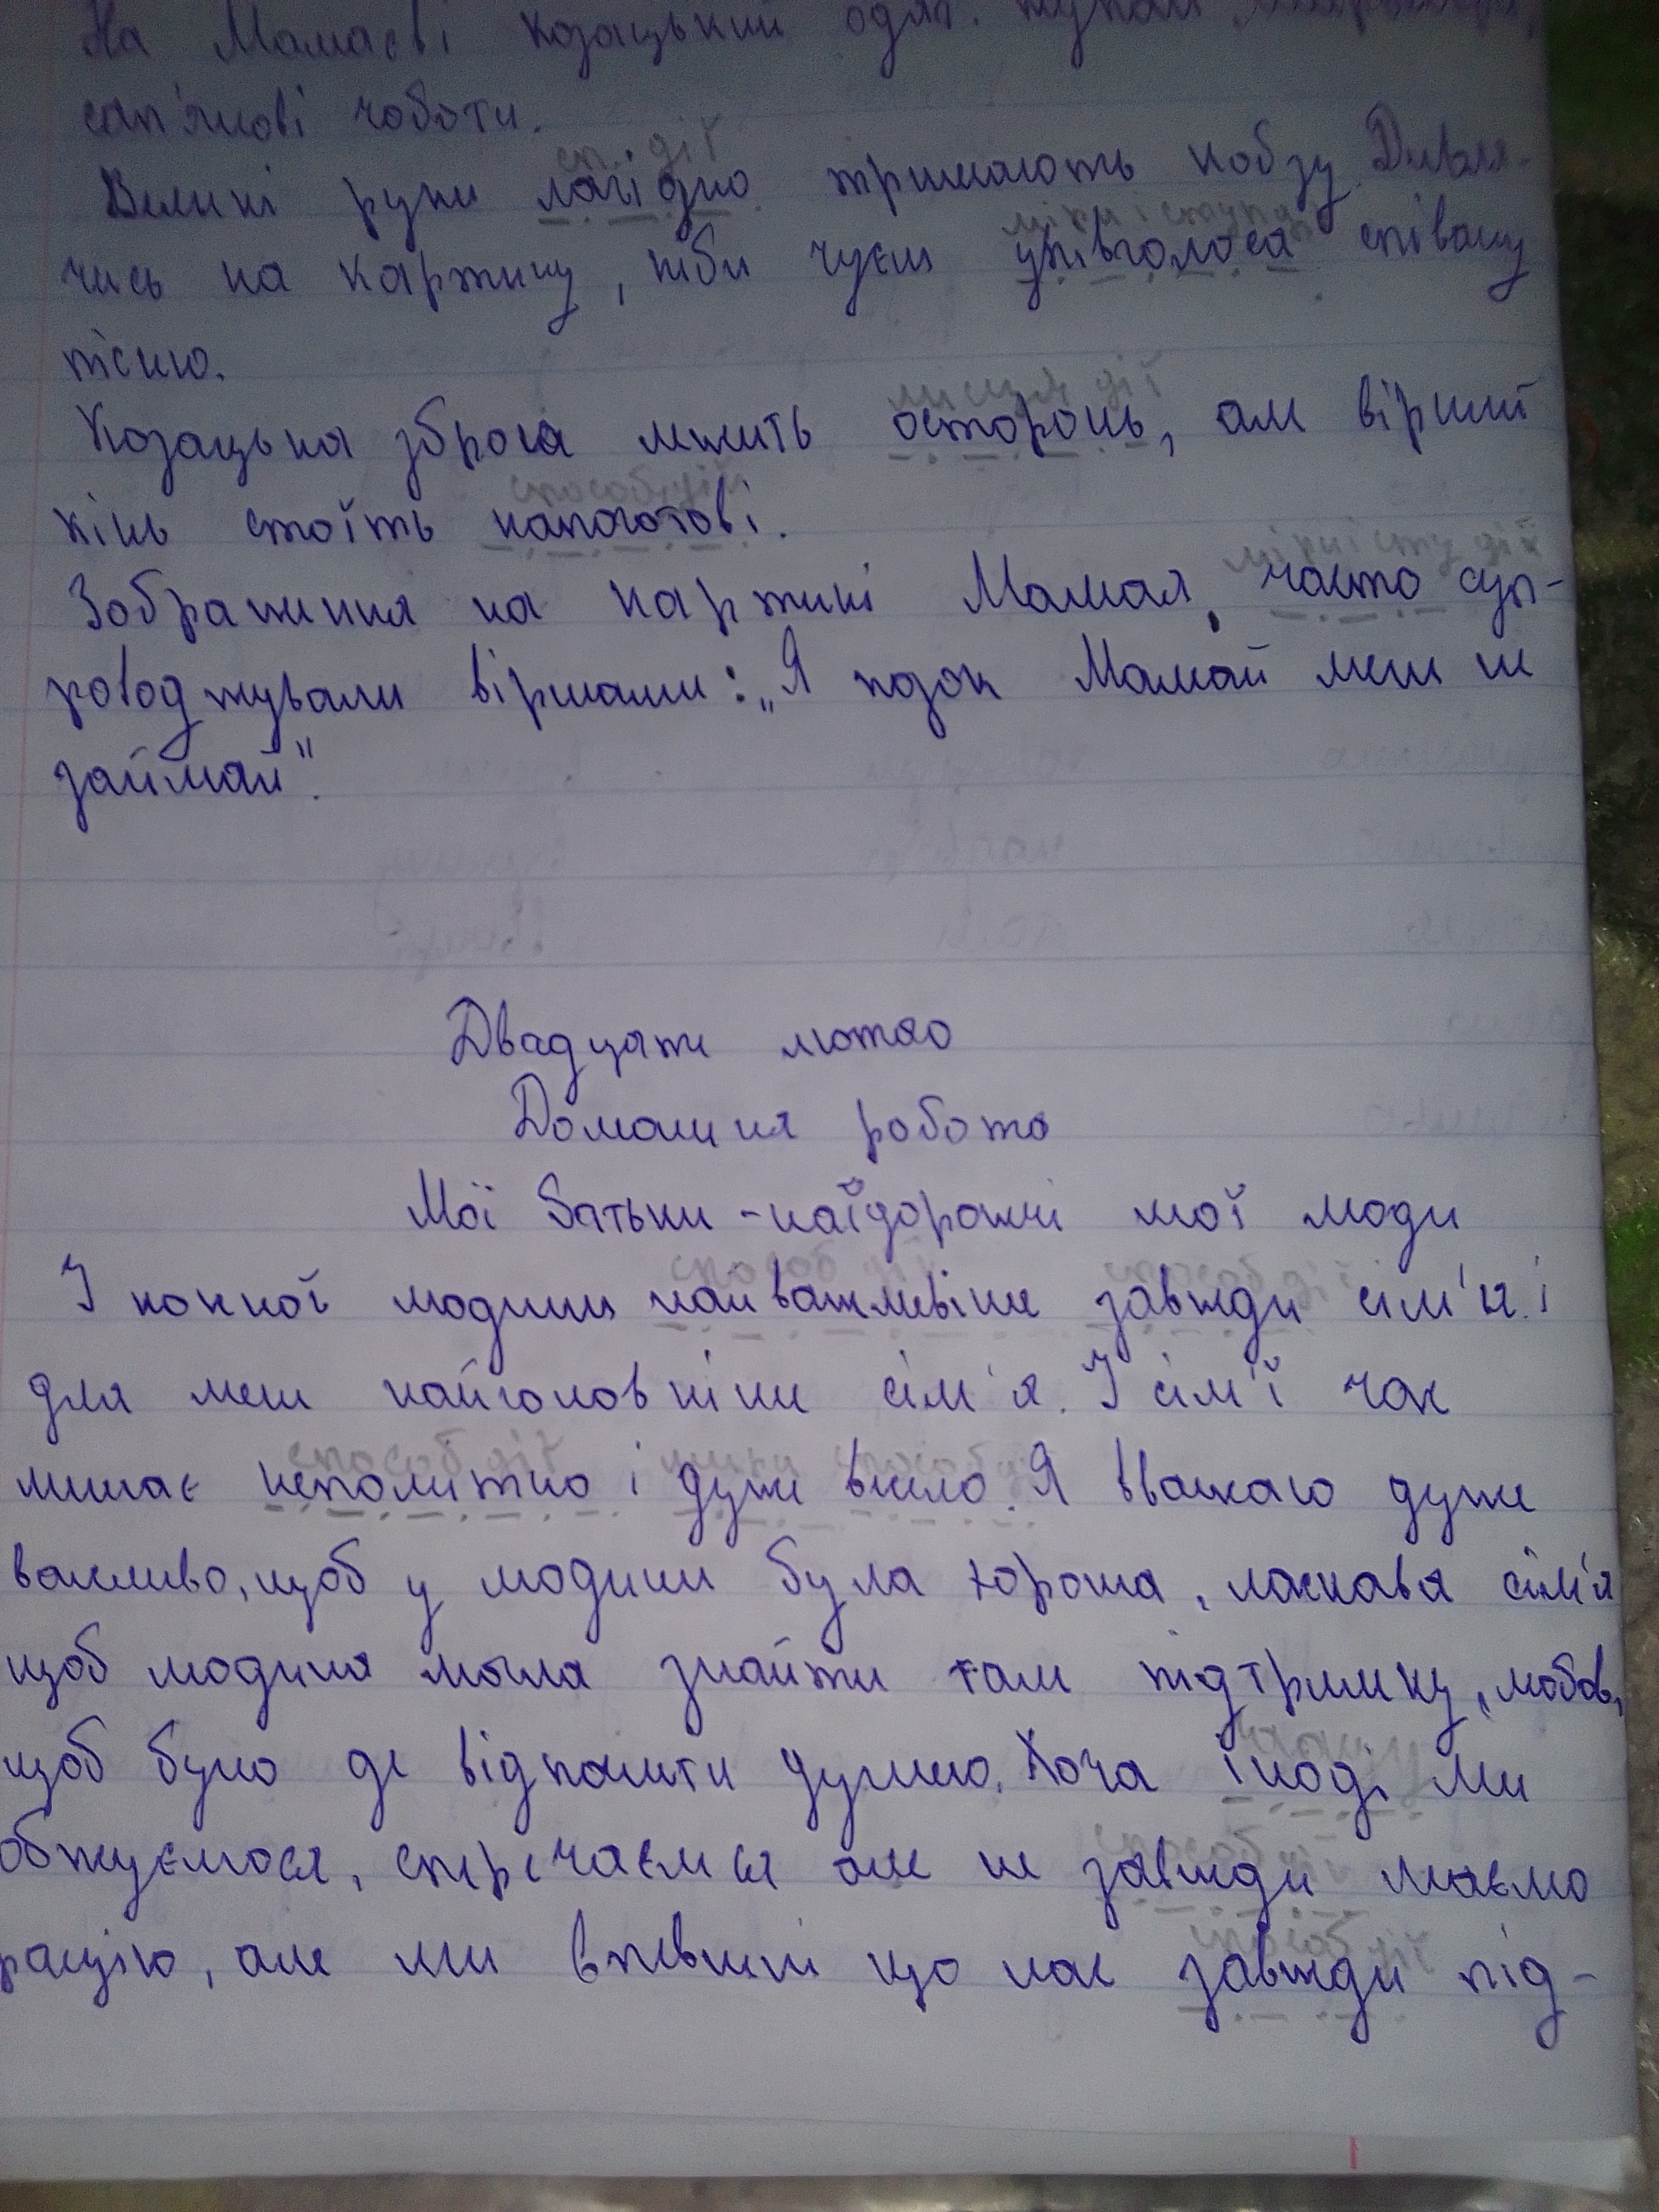 На Мамаєві козацький одяг: жупан,
сап'янові чоботи.
сп. дії
Великі руки лагідно тримають кобзу. Дивля-
міри і ступеня
чись на картину, ніби чуєш упівголоса співану
пісню.
місця дії
Козацька зброя лежить осторонь, але вірний
спосіб дії
кінь стоїть напоготові.
міри і сту дії
Зображення на картині Мамая, часто суп-
роводжували віршами: „Я козак Мамай мене не
займай".
Двадцяте лютого
Домашня робота
Мої батьки - найдорожчі мої люди
спосіб дії спосіб дії
У кожної людини найважливіше завжди сім'я. і
для мене найголовніше сім'я. У сім'ї час
спосіб дії міри спосіб дії
минає непомітно і дуже весело. Я вважаю дуже
важливо, щоб у людини була хороша, ласкава сім'я
щоб людина могла знайти там підтримку, любов,
часу
щоб було де відпочити душею. Хоча іноді ми
спосіб дії
ображуємося, сперечаємся але не завжди маємо
спосіб дії
рацію, але ми впевнені що нас завжди під-